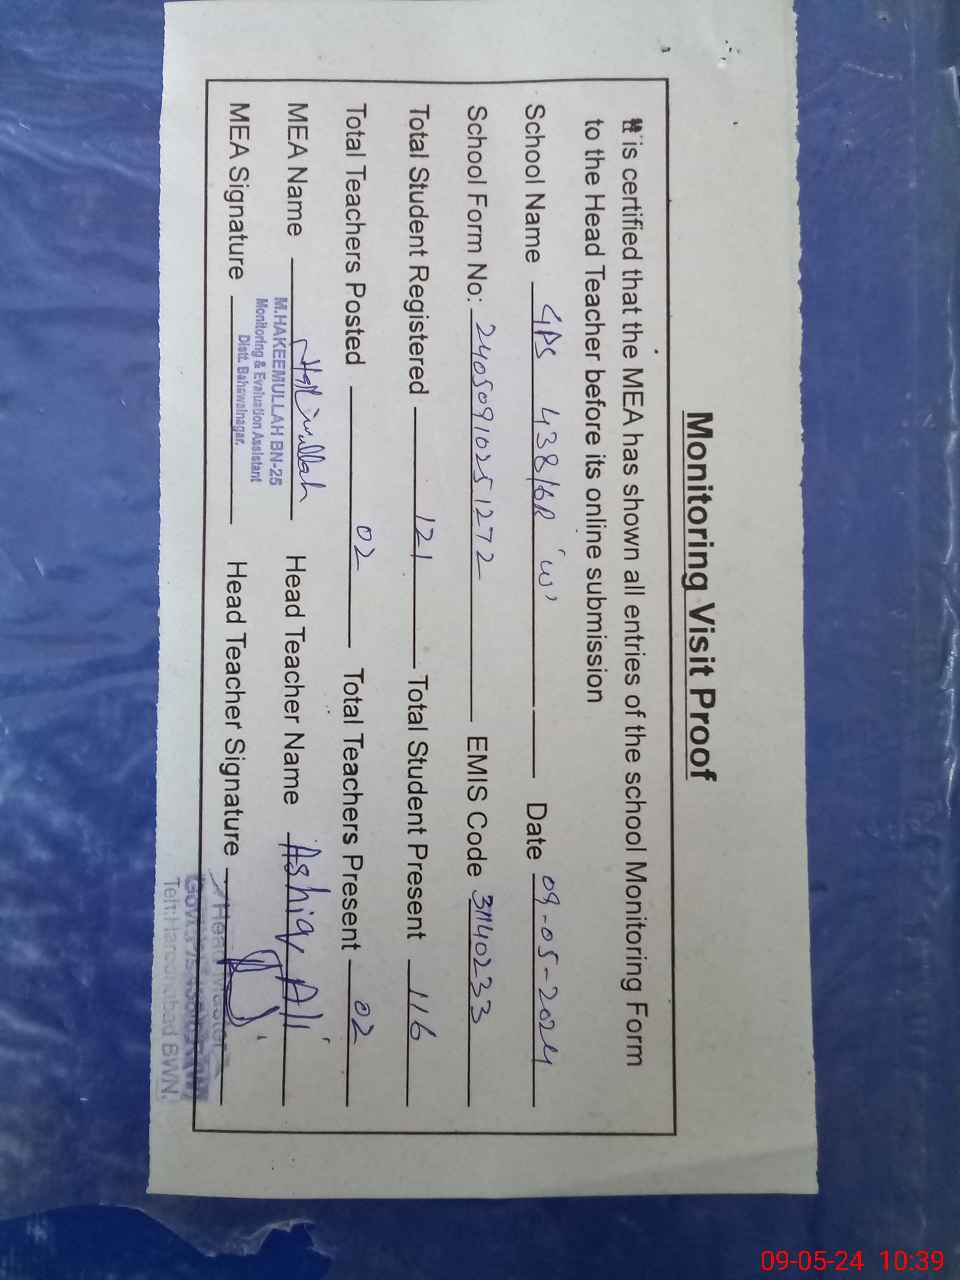 Monitoring Visit Proof
It is certified that the MEA has shown all entries of the school Monitoring Form
to the Head Teacher before its online submission
School Name GPS 438/6R 'W' Date 09-05-2024
School Form No: 24050910251272 EMIS Code 31140233
Total Student Registered 121 Total Student Present 116
Total Teachers Posted 02 Total Teachers Present 02
MEA Name Hakimullah Head Teacher Name Ashiq Ali
M.HAKEEMULLAH BN-25
Monitoring & Evaluation Assistant
Distt. Bahawalnagar.
MEA Signature Head Teacher Signature
Head Master
Teh: Haroonabad BWN.
09-05-24 10:39